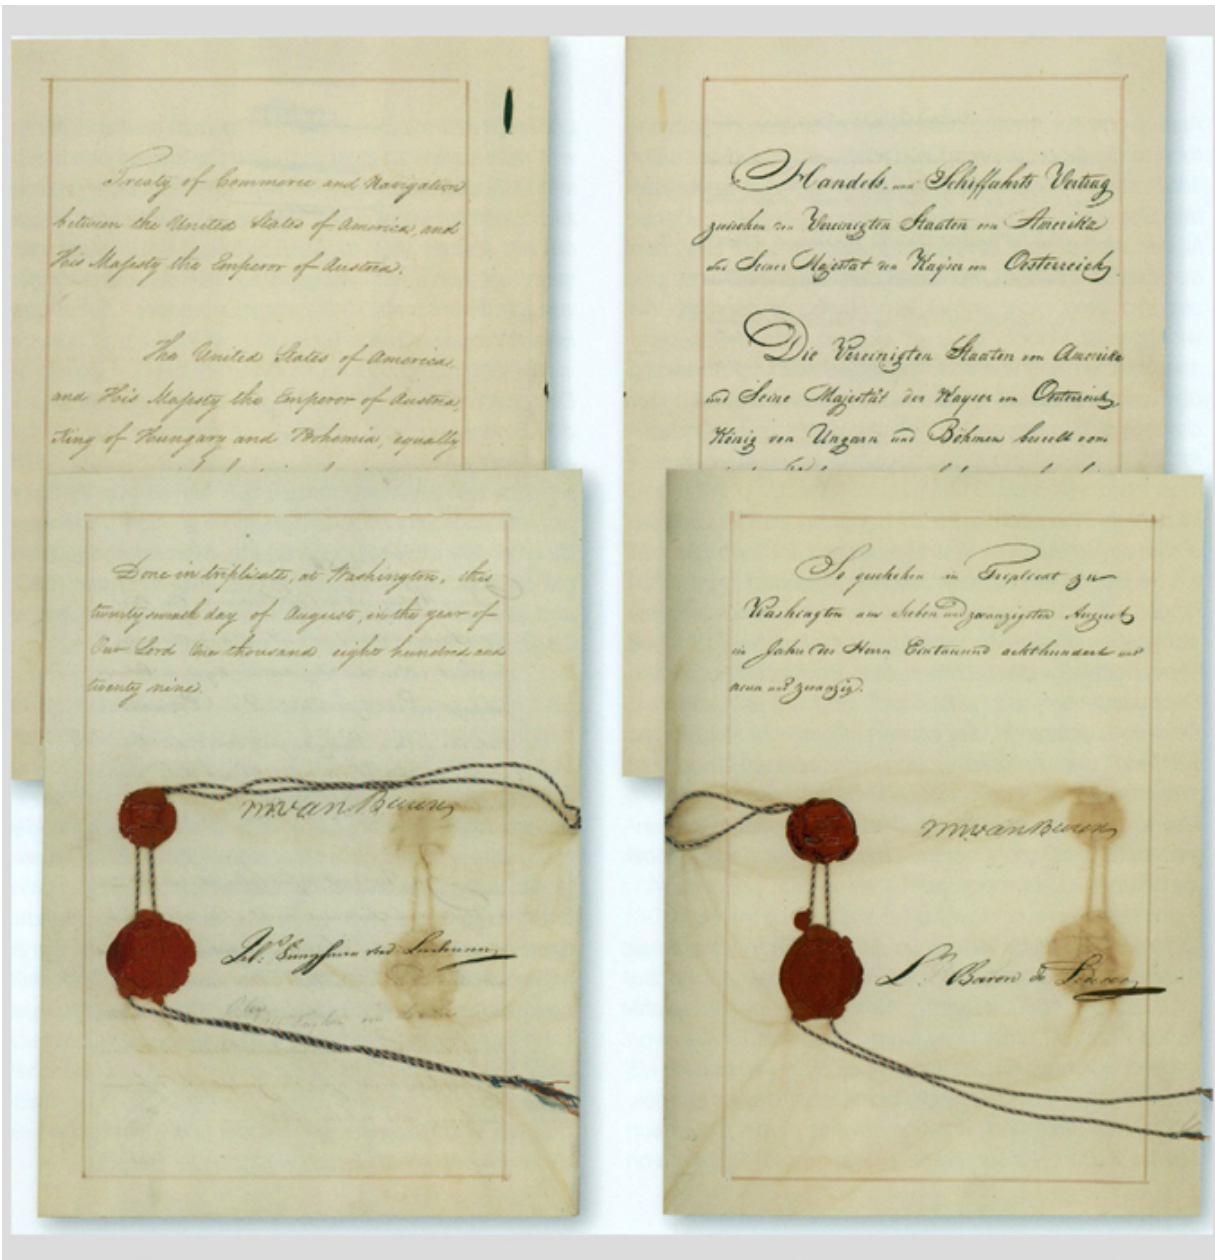 Treaty of Commerce and Navigation
between the United States of America, and
His Majesty the Emperor of Austria.
The United States of America,
and His Majesty the Emperor of Austria,
King of Hungary and Bohemia, equally
Done in triplicate, at Washington, this
twenty seventh day of August, in the year of
Our Lord One thousand eight hundred and
twenty nine.
M. van Buren
Handels und Schiffahrts Vertrag
zwischen den Vereinigten Staaten von Amerika
und Seiner Majestät den Kayser von Oesterreich
Die Vereinigten Staaten von Amerika
und Seine Majestät der Kayser von Oesterreich,
König von Ungarn und Böhmen beseelt vom
So geschehen in Triplicat zu
Washington am Sieben und zwanzigsten August
im Jahre des Herrn Eintausend achthundert und
neun und zwanzig.
M. van Buren
L. Baron de Lederer